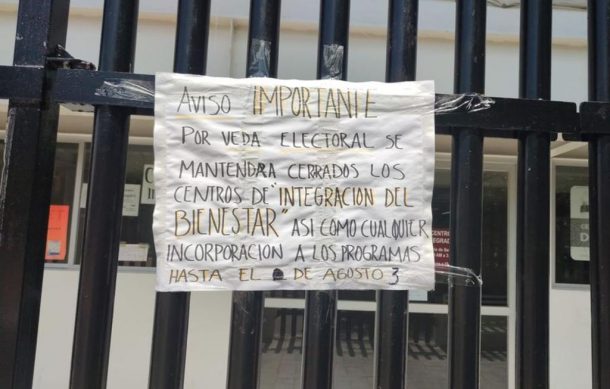 AVISO IMPORTANTE
POR VEDA ELECTORAL SE
MANTENDRA CERRADOS LOS
CENTROS DE "INTEGRACION DEL
BIENESTAR" ASI COMO CUALQUIER
INCORPORACION A LOS PROGRAMAS
HASTA EL DE AGOSTO 3